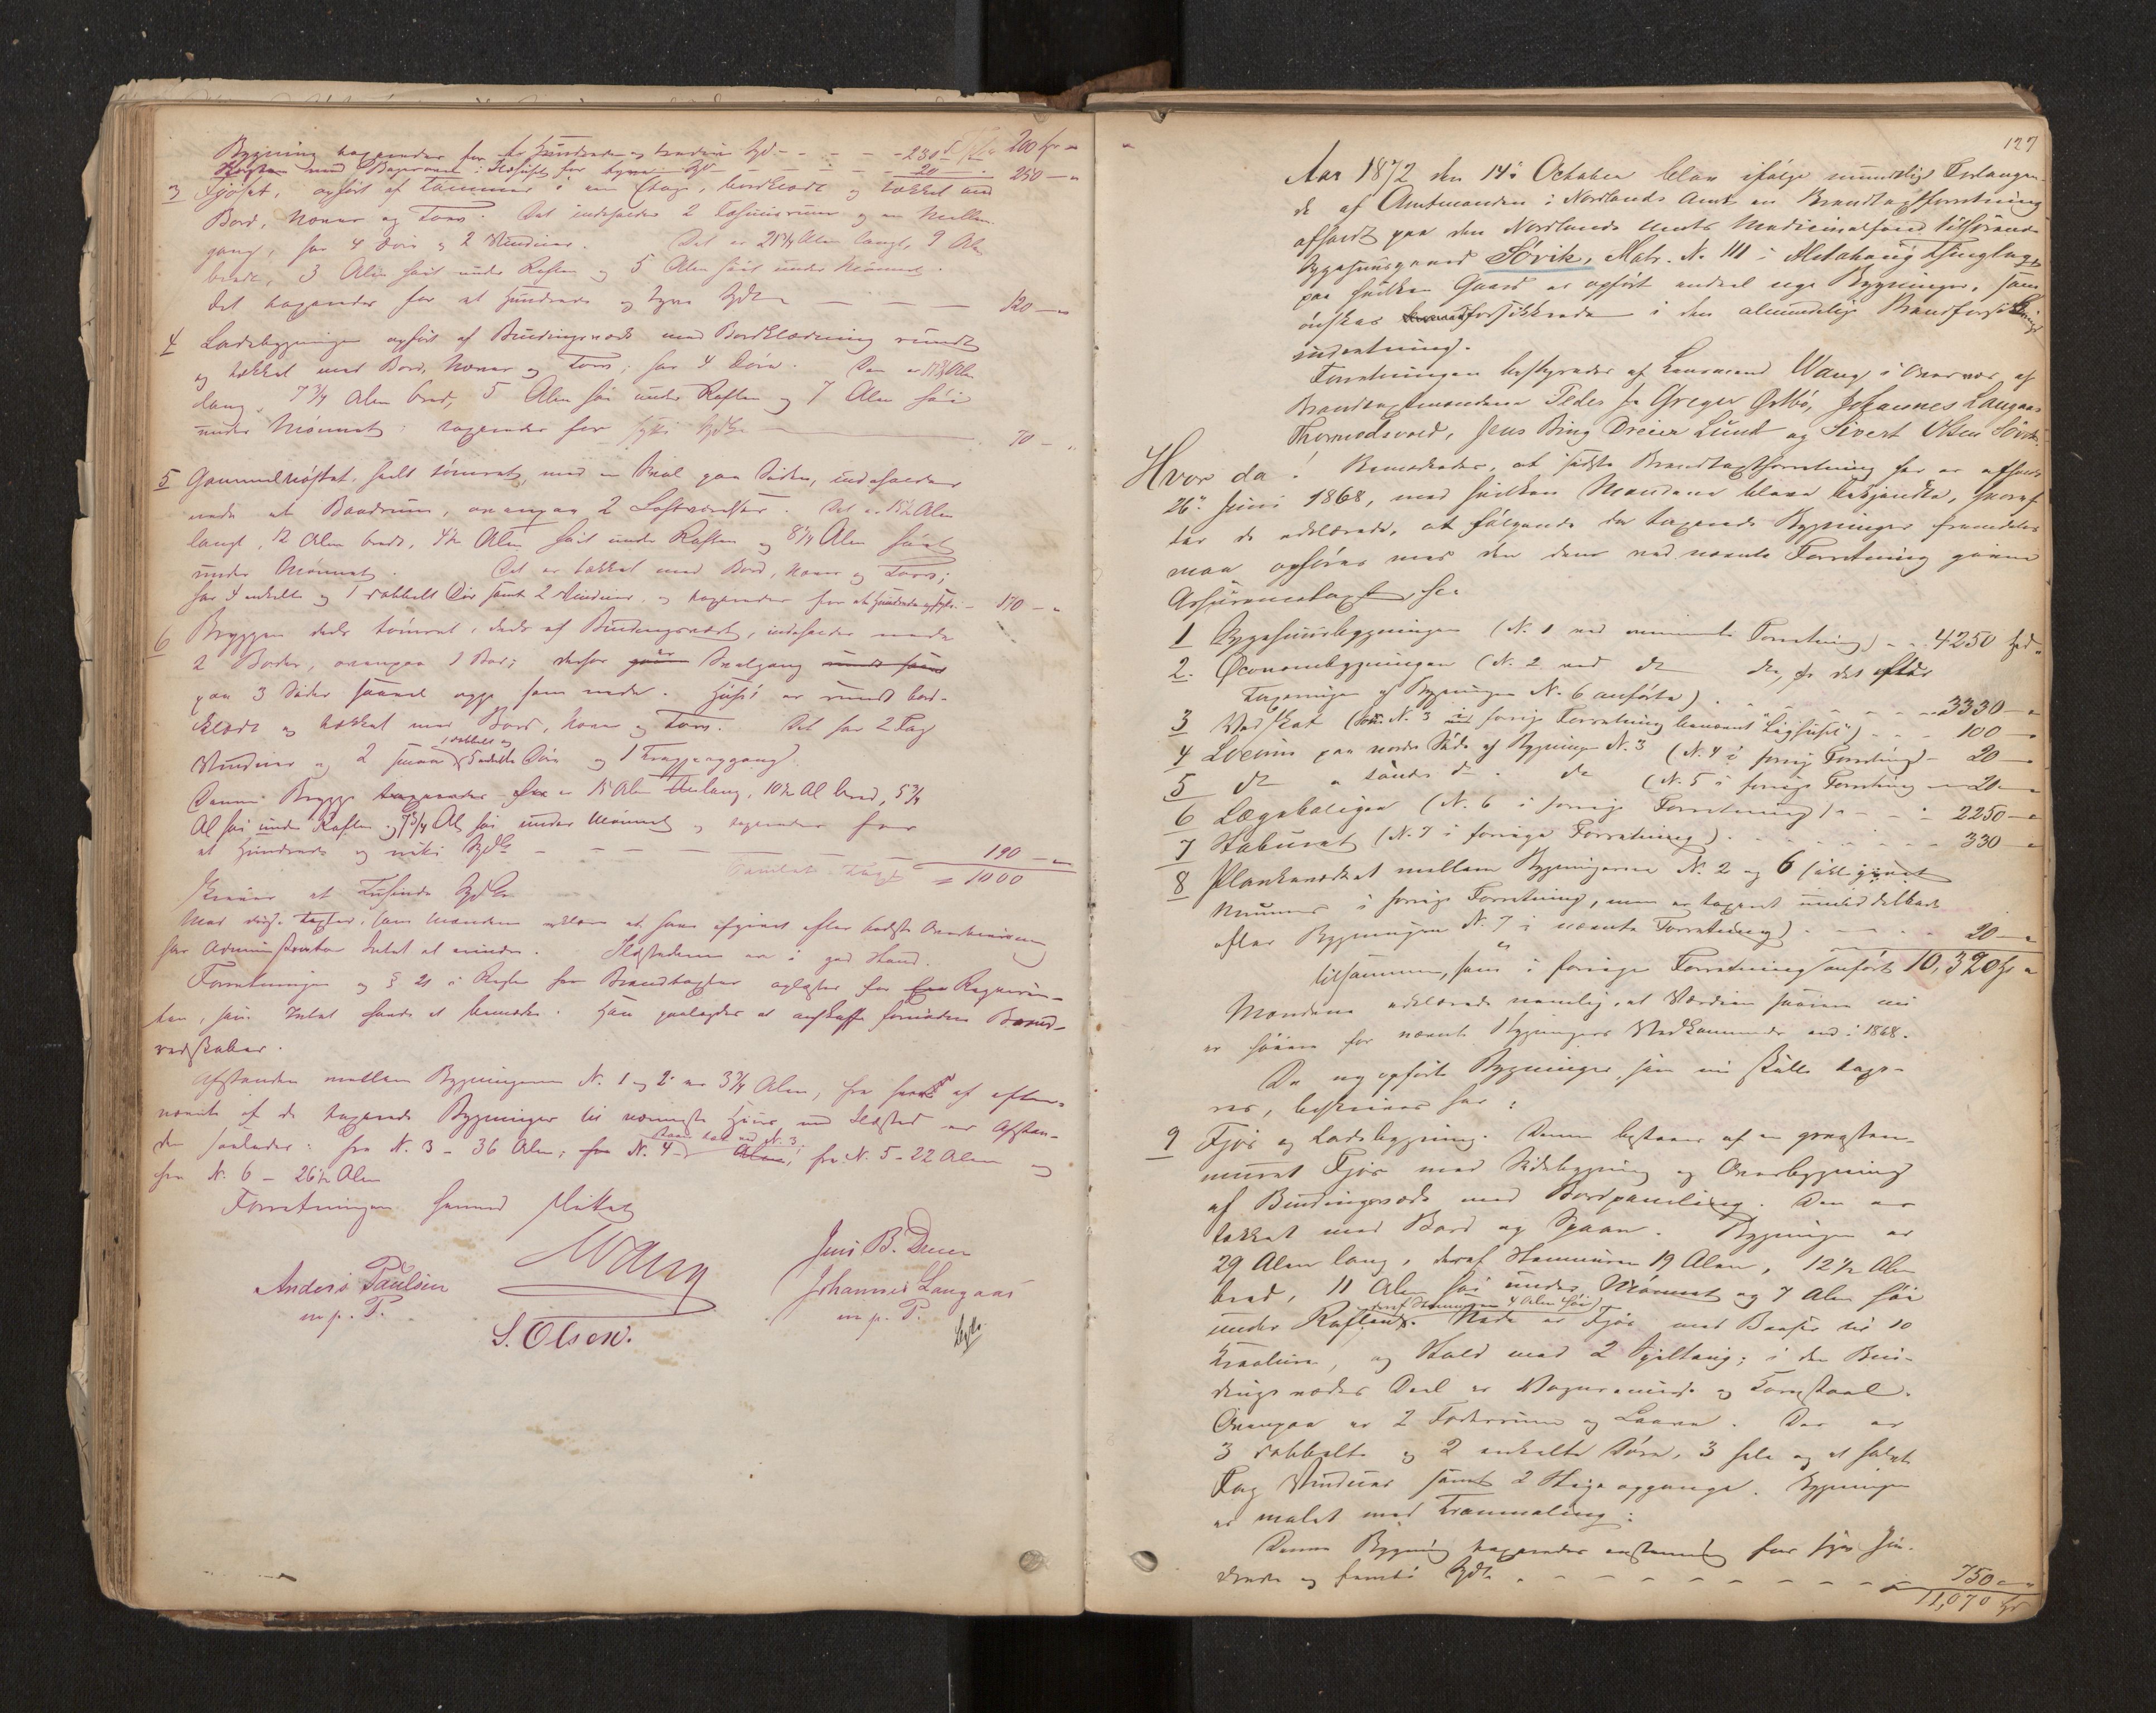 Bygning taxeredes for to Hundrede og tredive Spd - - - - 230 200 Spd "
med Bagerovn i Ildhuset for tyve Spd - - - 20 - 250 - "
3 Fjøset, opført af Tømmer i en Etage, bordklædt og tækket med
Bord, Næver og Torv. Det indeholder 2 Fæhuusrum og en Mellem-
gang, har 4 Døre og 2 Vinduer. Det er 21¾ Alen langt, 9 Al
bredt, 3 Alen høit under Raften og 5 Alen høit under Mønnet.
Det taxeredes for et Hundrede og tyve Spdlr — — — 120 - "
4 Ladebygningen opført af Bindingsværk med Bordklædning rundt
og tækket med Bord, Næver og Torv; har 4 Døre. Den er Alen
lang, 7¾ Alen bred, 5 Alen høi under Raften og 7 Alen høi
under Mønnet; taxeredes for sytti Spdlr — 70 - "
5 Gammelnøstet, heelt tømret, med en Sval paa Siden, indeholder
nede et Baadrum, ovenpaa 2 Loftværelser. Det er 15½ Alen
langt, 12 Alen bredt, 4½ Alen høit under Raften og 8¼ Alen høit
under Mønnet. Det er tækket med Bord, Næver og Torv;
har 4 enkelte og 1 dobbelt Dør samt 2 Vinduer, og taxeredes for et Hundrede og - 170 - "
6 Bryggen deels tømret, deels af Bindingsværk, indeholder nede
2 Boder, ovenpaa 1 Bod; derfor er Svalgang rundt
paa 3 Sider saavel oppe som nede. Huset er rundt bord-
klædt og tækket med Bord, Næver og Torv. Det har 2 Fag
Vinduer og 2 smaa 1 dobbelt og 5 enkelte Døre og 1 Trappeopgang.
Denne Brygge taxeredes for er 15 Alen lang, 10½ Al bred, 5¾
Al høi under Raften og 7¾ Al høi under Mønnet og taxeredes for
et Hundrede og nitti Spdlr — — — 190 — "
Samlet Taxt = 1000
Skriver et Tusinde Spdlr
Mod disse Taxter, som Mændene erklære at have afgivet efter bedste Overbeviisning
har Administrator Intet at erindre. Ildstederne er i god Stand.
Forretningen og § 21 i Regler for Brandtaxter oplæstes for Reqvirenten,
som Intet havde at bemærke. Han paalagdes at anskaffe fornødne Brand-
redskaber.
Afstanden mellem Bygningerne N. 1 og 2 er 3¾ Alen, fra hvert af efter-
nævnte af de taxerede Bygninger til nærmeste Huus med Ildsted er Afstan-
den saaledes: fra N. 3 - 36 Alen; fra N. 4 - staar tæt ved N. 3; fra N. 5 - 22 Alen og
fra N. 6 - 26½ Alen
Forretningen hermed sluttet
Wang
Jens B. Dreier
Anders Paulsen
m. p. P.
Johannes Langaas
m. p. P.
S. Olsen.
127
Aar 1872 den 14de October blev ifølge mundtligt Forlangen-
de af Amtmanden i Nordlands Amt en Brandtaxtforretning
afholdt paa den Nordlands Amts Medicinalfond tilhørende
Sygehuusgaard Søvik, Matr. N. 111 i Alstahaug Thinglag
paa hvilken Gaard er opført endeel nye Bygninger, som
ønskes forsikkrede i den almindelige Brandforsikkrings
indretning.
Forretningen bestyredes af Lensmand Wang i Overvær af
Brandtaxtmændene Peder Greger Østbø, Johannes Langaas
Thormodsvold, Jens Bing Dreier Lund og Sivert Olsen Søvik
Hvor da!
Bemærkedes, at sidste Brandtaxtforretning her er afholdt
26de Juni 1868, med hvilken Mændene bleve bekjendte, hvoraf
der de erklærede, at følgende da taxerede Bygninger fremdeles
maa opføres med den dem ved nævnte Forretning givne
Assurancetaxt, sc:
1 Sygehuusbygningen (N. 1 ved nævnte Forretning) - - 4250 Spd "
2. Oeconomibygningen (N. 2 ved do do, jfr det efter
Taxeringen af Bygningen N. 6 anførte) . - - - - 3330 - "
3 Vedskat (som N. 3 i forrige Forretning benævnt "Liighuset") - - - 100 - "
4 Locum paa nordre Side af Bygningen N. 3 (N. 4 i forrige Forretning) - 20 - "
5 do " søndre do do (N. 5 i forrige Forretning - 20 - "
6 Lægeboligen (N. 6 i forrige Forretning) - - - 2250 - "
7 Staburet (N. 7 i forrige Forretning) . - - - - 330 - "
8 Plankeværket mellem Bygningerne N. 2 og 6 (ikke givet
Nummer i forrige Forretning, men er taxeret umiddelbart
efter Bygningen N. 7 i nævnte Forretning) . - - - 20 - "
tilsammen, som i forrige Forretning anført 10,320 Spd "
Mændene erklærede nemlig, at Værdien hverken nu
er høiere for nævnte Bygningers Vedkommende end i 1868.
De nyopførte Bygninger, som nu skulle taxe-
res, beskrives her:
9 Fjøs og Ladebygning. Denne bestaaer af en graasteens-
muret Fjøs med Sidebygning og Overbygning
af Bindingsværk med Bordpaneling. Den er
tækket med Bord og Spaan. Bygningen er
29 Alen lang, deraf Steenmuren 19 Alen, 12½ Alen
bred, 11 Alen høi under Mønnet og 7 Alen høi
under Raftend. deraf Steenmuren 4 Alen høi) Nede er Fjøs med Baase til 10
Kreature, og Stald med 2 Spiltaug; i den Bin-
dingsværks Deel er Vognremise og Tørvstaal.
Ovenpaa er 2 Foderrum og Laave. Der er
3 dobbelte og 2 enkelte Døre, 3 hele og et halvt
Fag Vinduer samt 2 Stigeopgange. Bygningen
er malet med Tranmaling.
Denne Bygning taxeredes enstemmig for syv Hun-
drede og femti Spdlr . - - - - - - - 750 - "
11,070 Spd